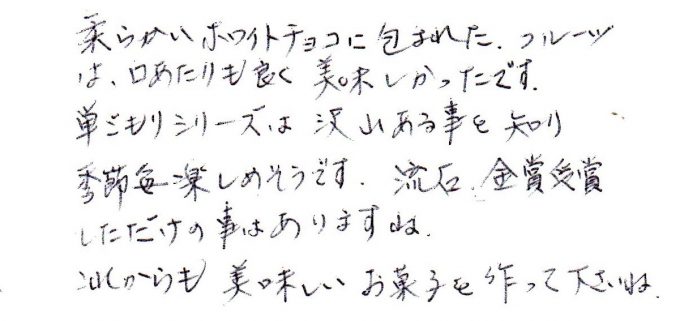 柔らかいホワイトチョコに包まれた、フルーツ
は、口あたりも良く美味しかったです。
単ごもりシリーズは沢山ある事を知り
季節毎楽しめそうです。流石、金賞受賞
しただけの事はありますね。
これからも美味しいお菓子を作って下さいね。